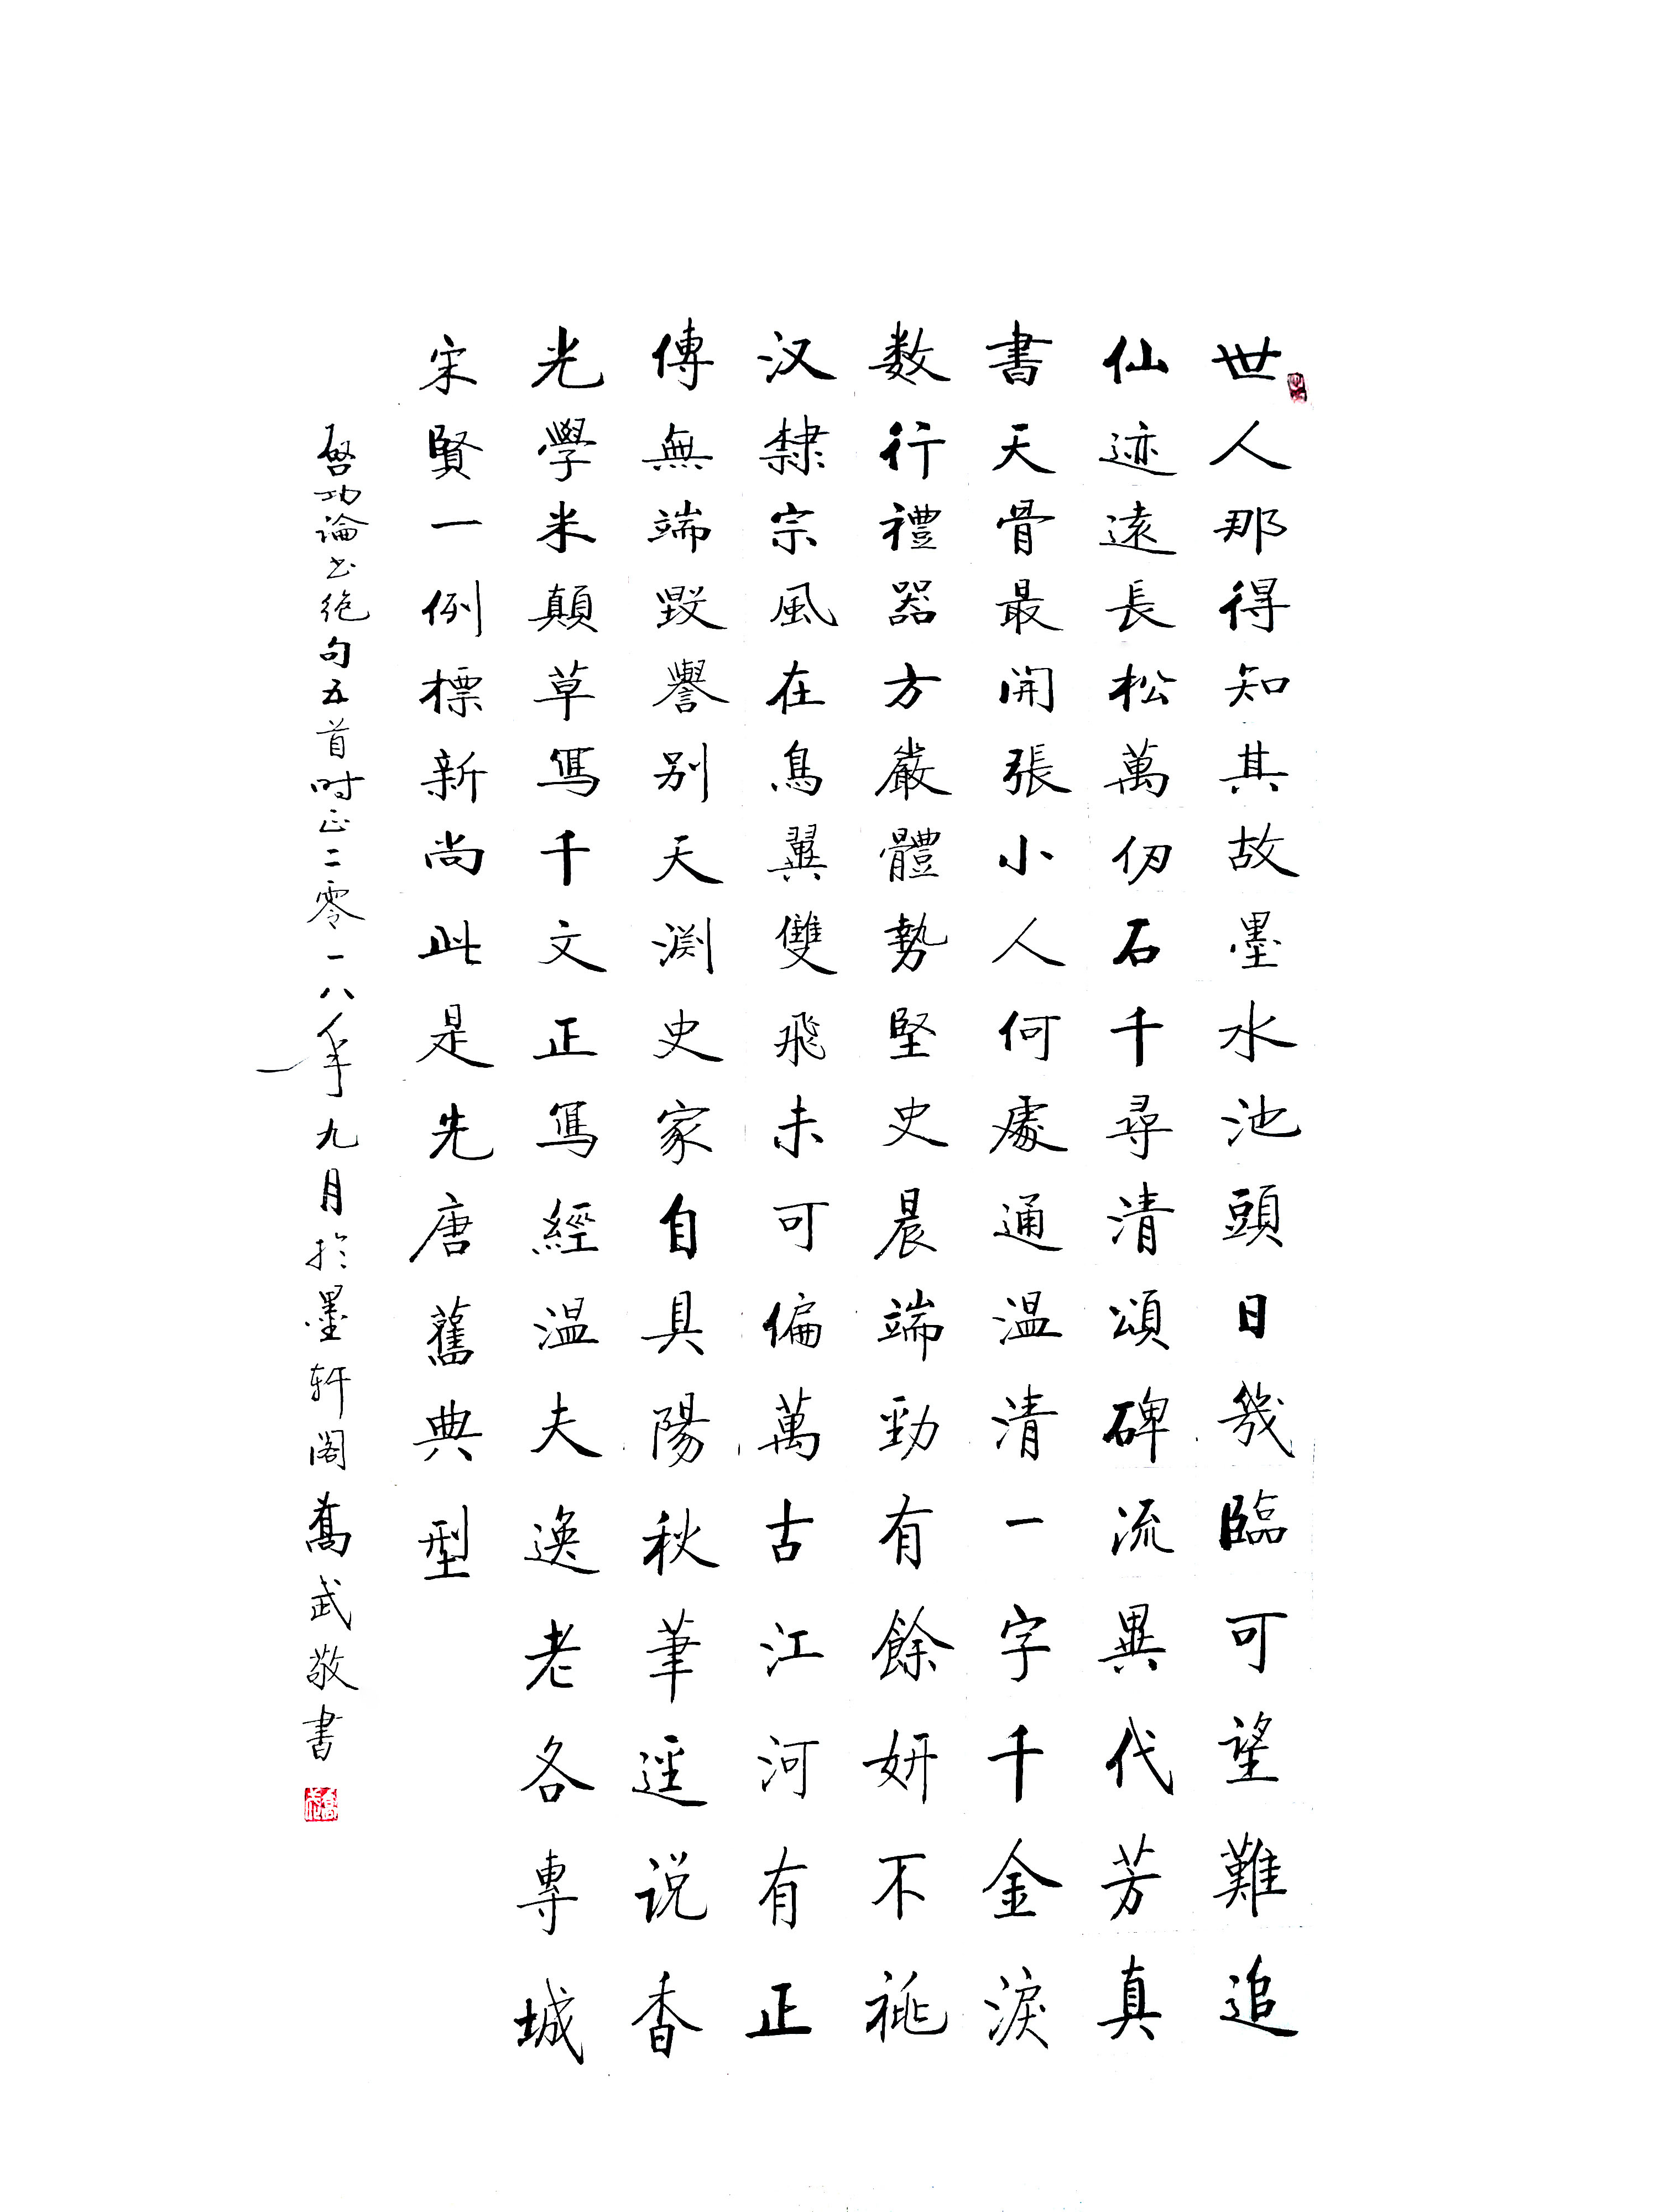 世人那得知其故墨水池頭日幾臨可望難追
仙迹遠長松萬仞石千尋清頌碑流異代芳真
書天骨最開張小人何處通温清一字千金淚
数行禮器方嚴體勢堅史晨端勁有餘妍不祧
汉隸宗風在鳥翼雙飛未可偏萬古江河有正
傳無端毀譽别天淵史家自具陽秋筆逕说香
光學米顛草寫千文正寫經温夫逸老各專城
宋賢一例標新尚此是先唐舊典型
啓功論书絶句五首时正二零一八年九月於墨轩阁喬武敬書
喬武